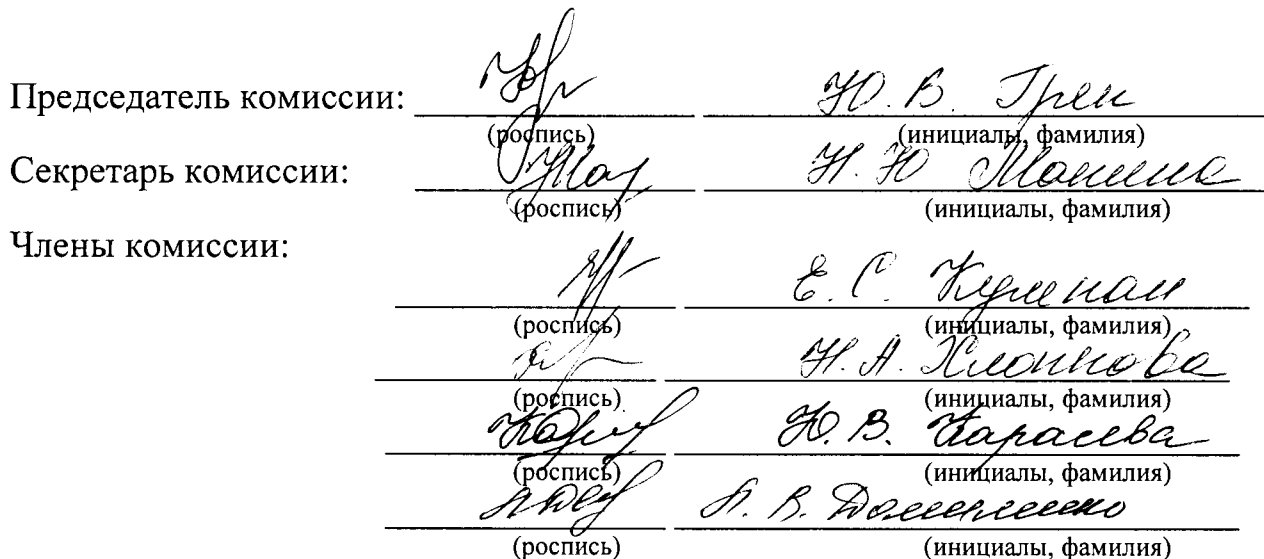 Председатель комиссии: Ю. В. Грек
(роспись) (инициалы, фамилия)
Секретарь комиссии: Н. Ю Манина
(роспись) (инициалы, фамилия)
Члены комиссии:
Е. С.
(роспись) (инициалы, фамилия)
Н. А. Хлопкова
(роспись) (инициалы, фамилия)
Ю. В. Карасева
(роспись) (инициалы, фамилия)
В.
(роспись) (инициалы, фамилия)